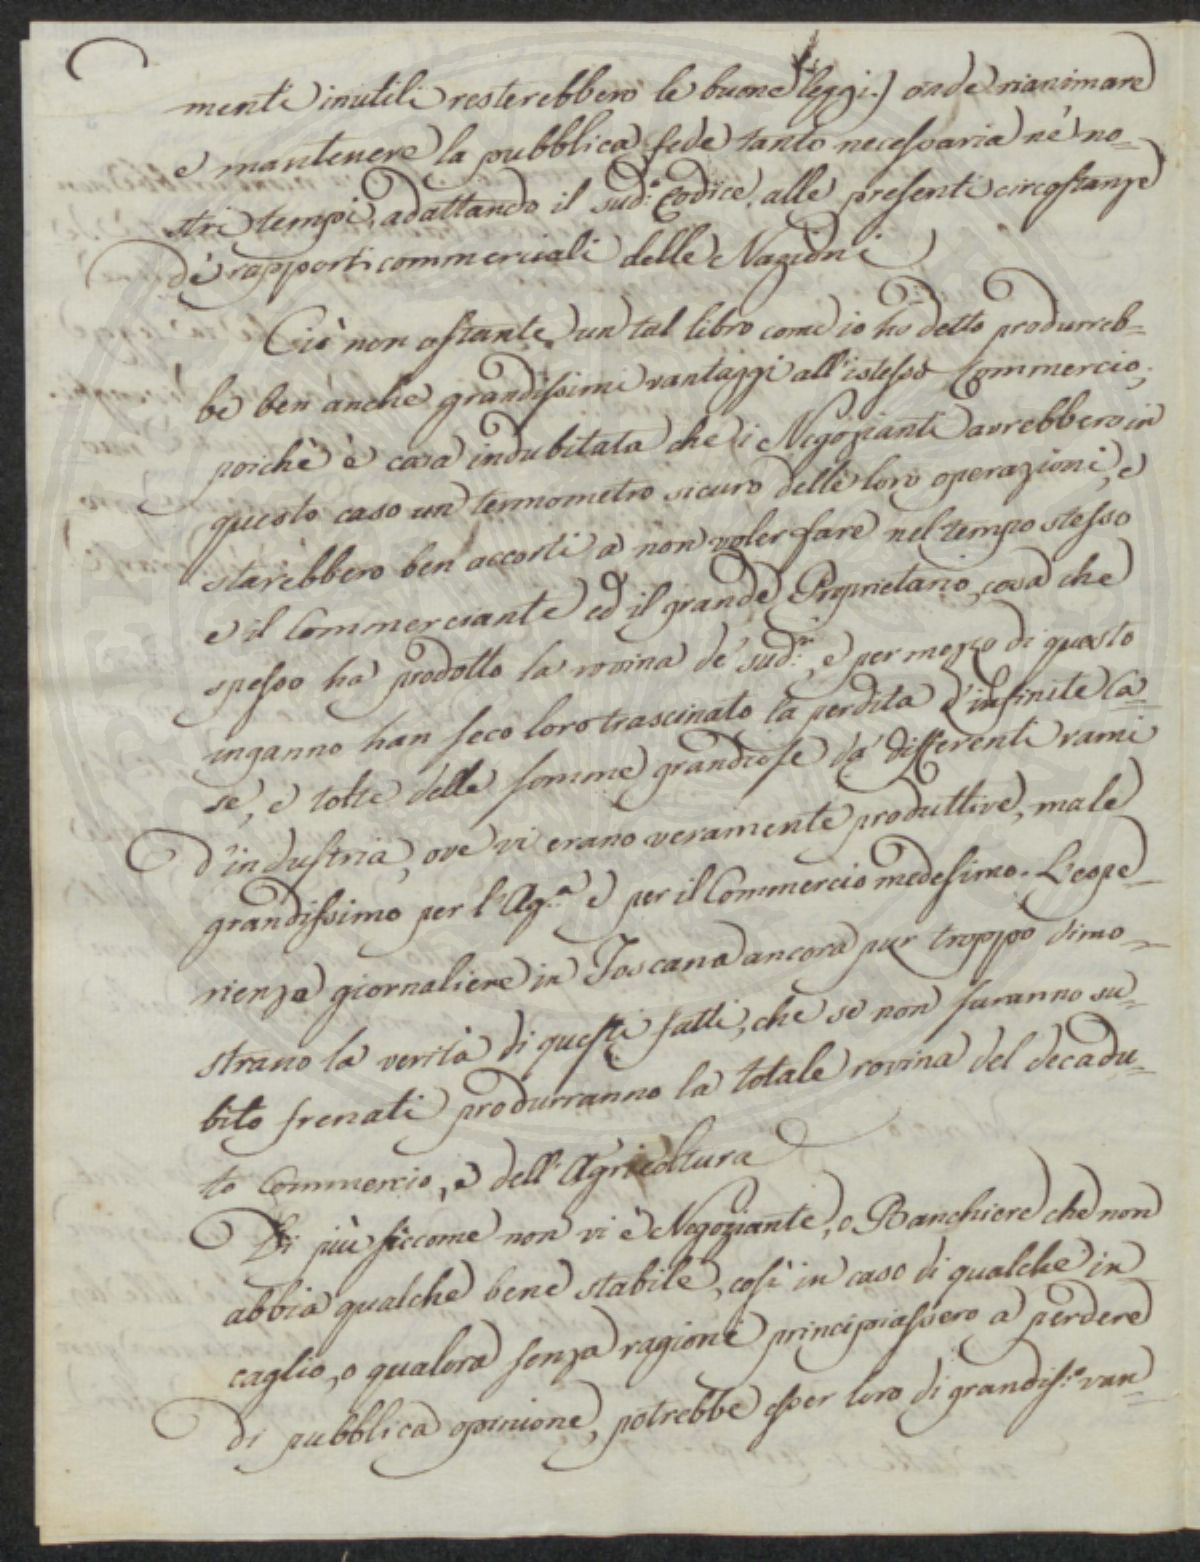 menti inutili resterebbero le buone leggi.) onde rianimare
e mantenere la pubblica fede tanto necessaria nè no=
stri tempi, adattando il sud.º Codice, alle presenti circostanze
dè rapporti commerciali delle Nazioni
Ciò non ostante un tal libro come io ho detto produrreb=
be ben'anche grandissimi vantaggi all'istesso Commercio;
poichè è cosa indubitata che i Negozianti avrebbero in
questo caso un termometro sicuro delle loro operazioni, e
starebbero ben accorti a non voler fare nel tempo stesso
e il Commerciante ed il grande Proprietario, cosa che
spesso ha prodotto la rovina de' sud.ⁱ, e per mezzo di questo
inganno han seco loro trascinato la perdita d'infinite Ca=
se, e tolte delle somme grandiose da' differenti rami
d'industria, ove vi erano veramente produttive, male
grandissimo per l'Ag.ª e per il Commercio medesimo. L'espe=
rienza giornaliere in Toscana ancora pur troppo dimo=
strano la verità di questi fatti, che se non saranno su=
bito frenati produrranno la totale rovina del decadu=
to Commercio, e dell'Agricoltura
Di più siccome non vi è Negoziante, o Banchiere che non
abbia qualche bene stabile, così in caso di qualche in
caglio, o qualora senza ragione principiassero a perdere
di pubblica opinione, potrebbe esser loro di grandis.º van=